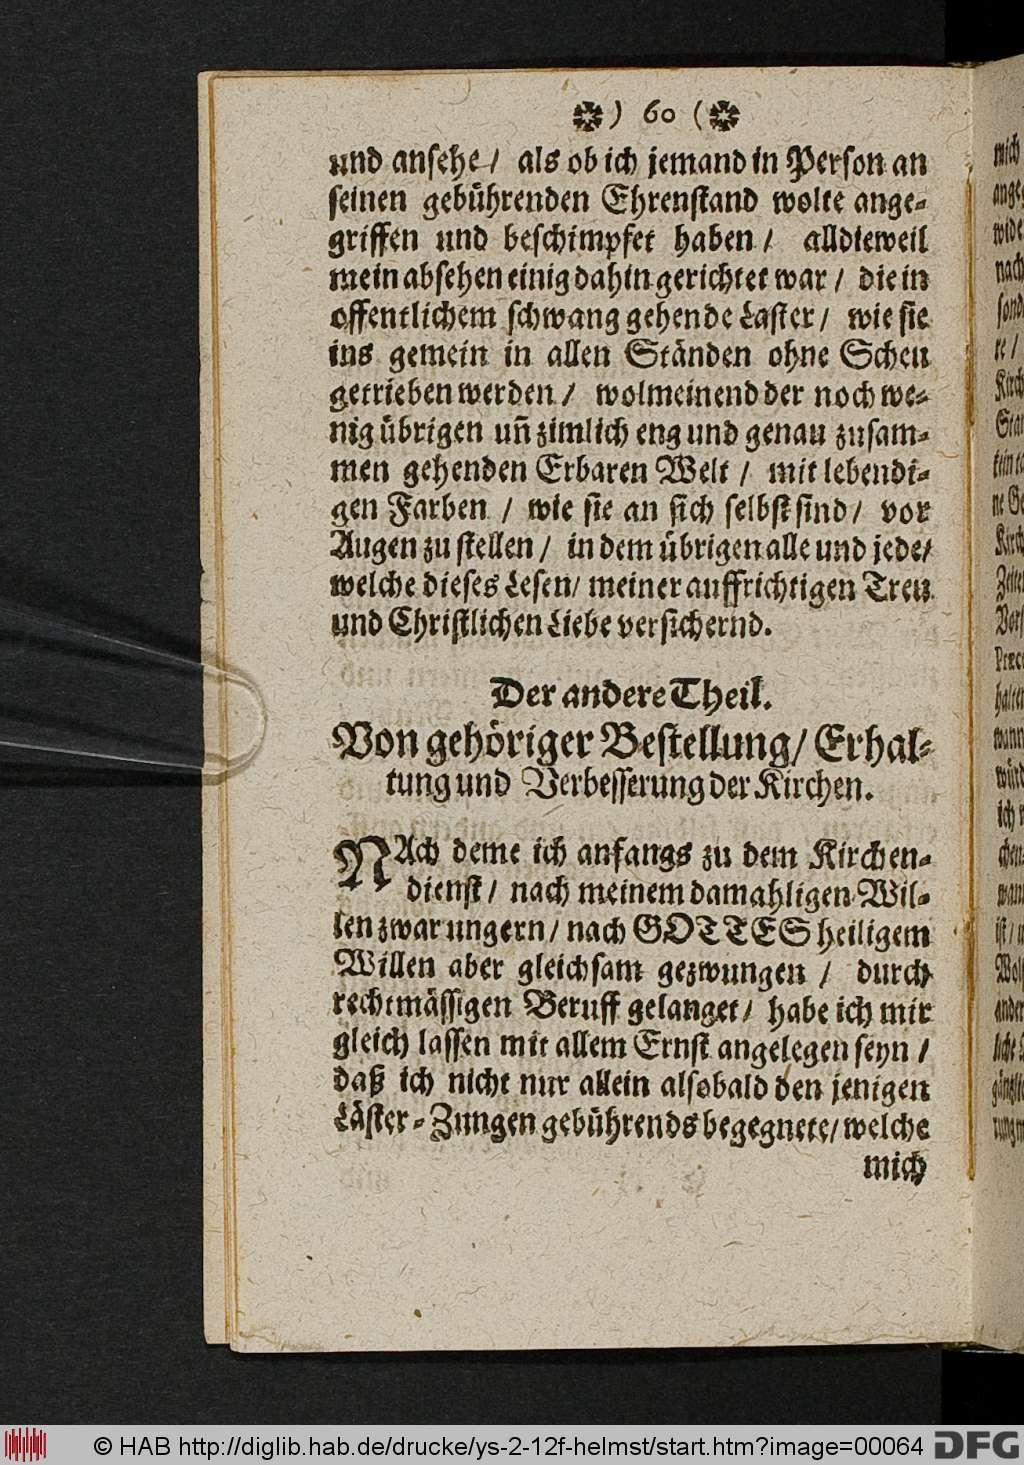 ) 60 (
und ansehe / als ob ich jemand in Person an
seinen gebührenden Ehrenstand wolte ange-
griffen und beschimpfet haben / alldieweil
mein absehen einig dahin gerichtet war / die in
offentlichem schwang gehende Laster / wie sie
ins gemein in allen Ständen ohne Scheu
getrieben werden / wolmeinend der noch we-
nig übrigen uñ zimlich eng und genau zusam-
men gehenden Erbaren Welt / mit lebendi-
gen Farben / wie sie an sich selbst sind / vor
Augen zu stellen / in dem übrigen alle und jede /
welche dieses Lesen / meiner auffrichtigen Treu
und Christlichen Liebe versichernd.
Der andere Theil.
Von gehöriger Bestellung / Erhal-
tung und Verbesserung der Kirchen.
NAch deme ich anfangs zu dem Kirchen-
dienst / nach meinem damahligen Wil-
len zwar ungern / nach GOTTES heiligem
Willen aber gleichsam gezwungen / durch
rechtmässigen Beruff gelanget / habe ich mir
gleich lassen mit allem Ernst angelegen seyn /
daß ich nicht nur allein alsobald den jenigen
Läster-Zungen gebührends begegnete / welche
mich
© HAB http://diglib.hab.de/drucke/ys-2-12f-helmst/start.htm?image=00064
DFG